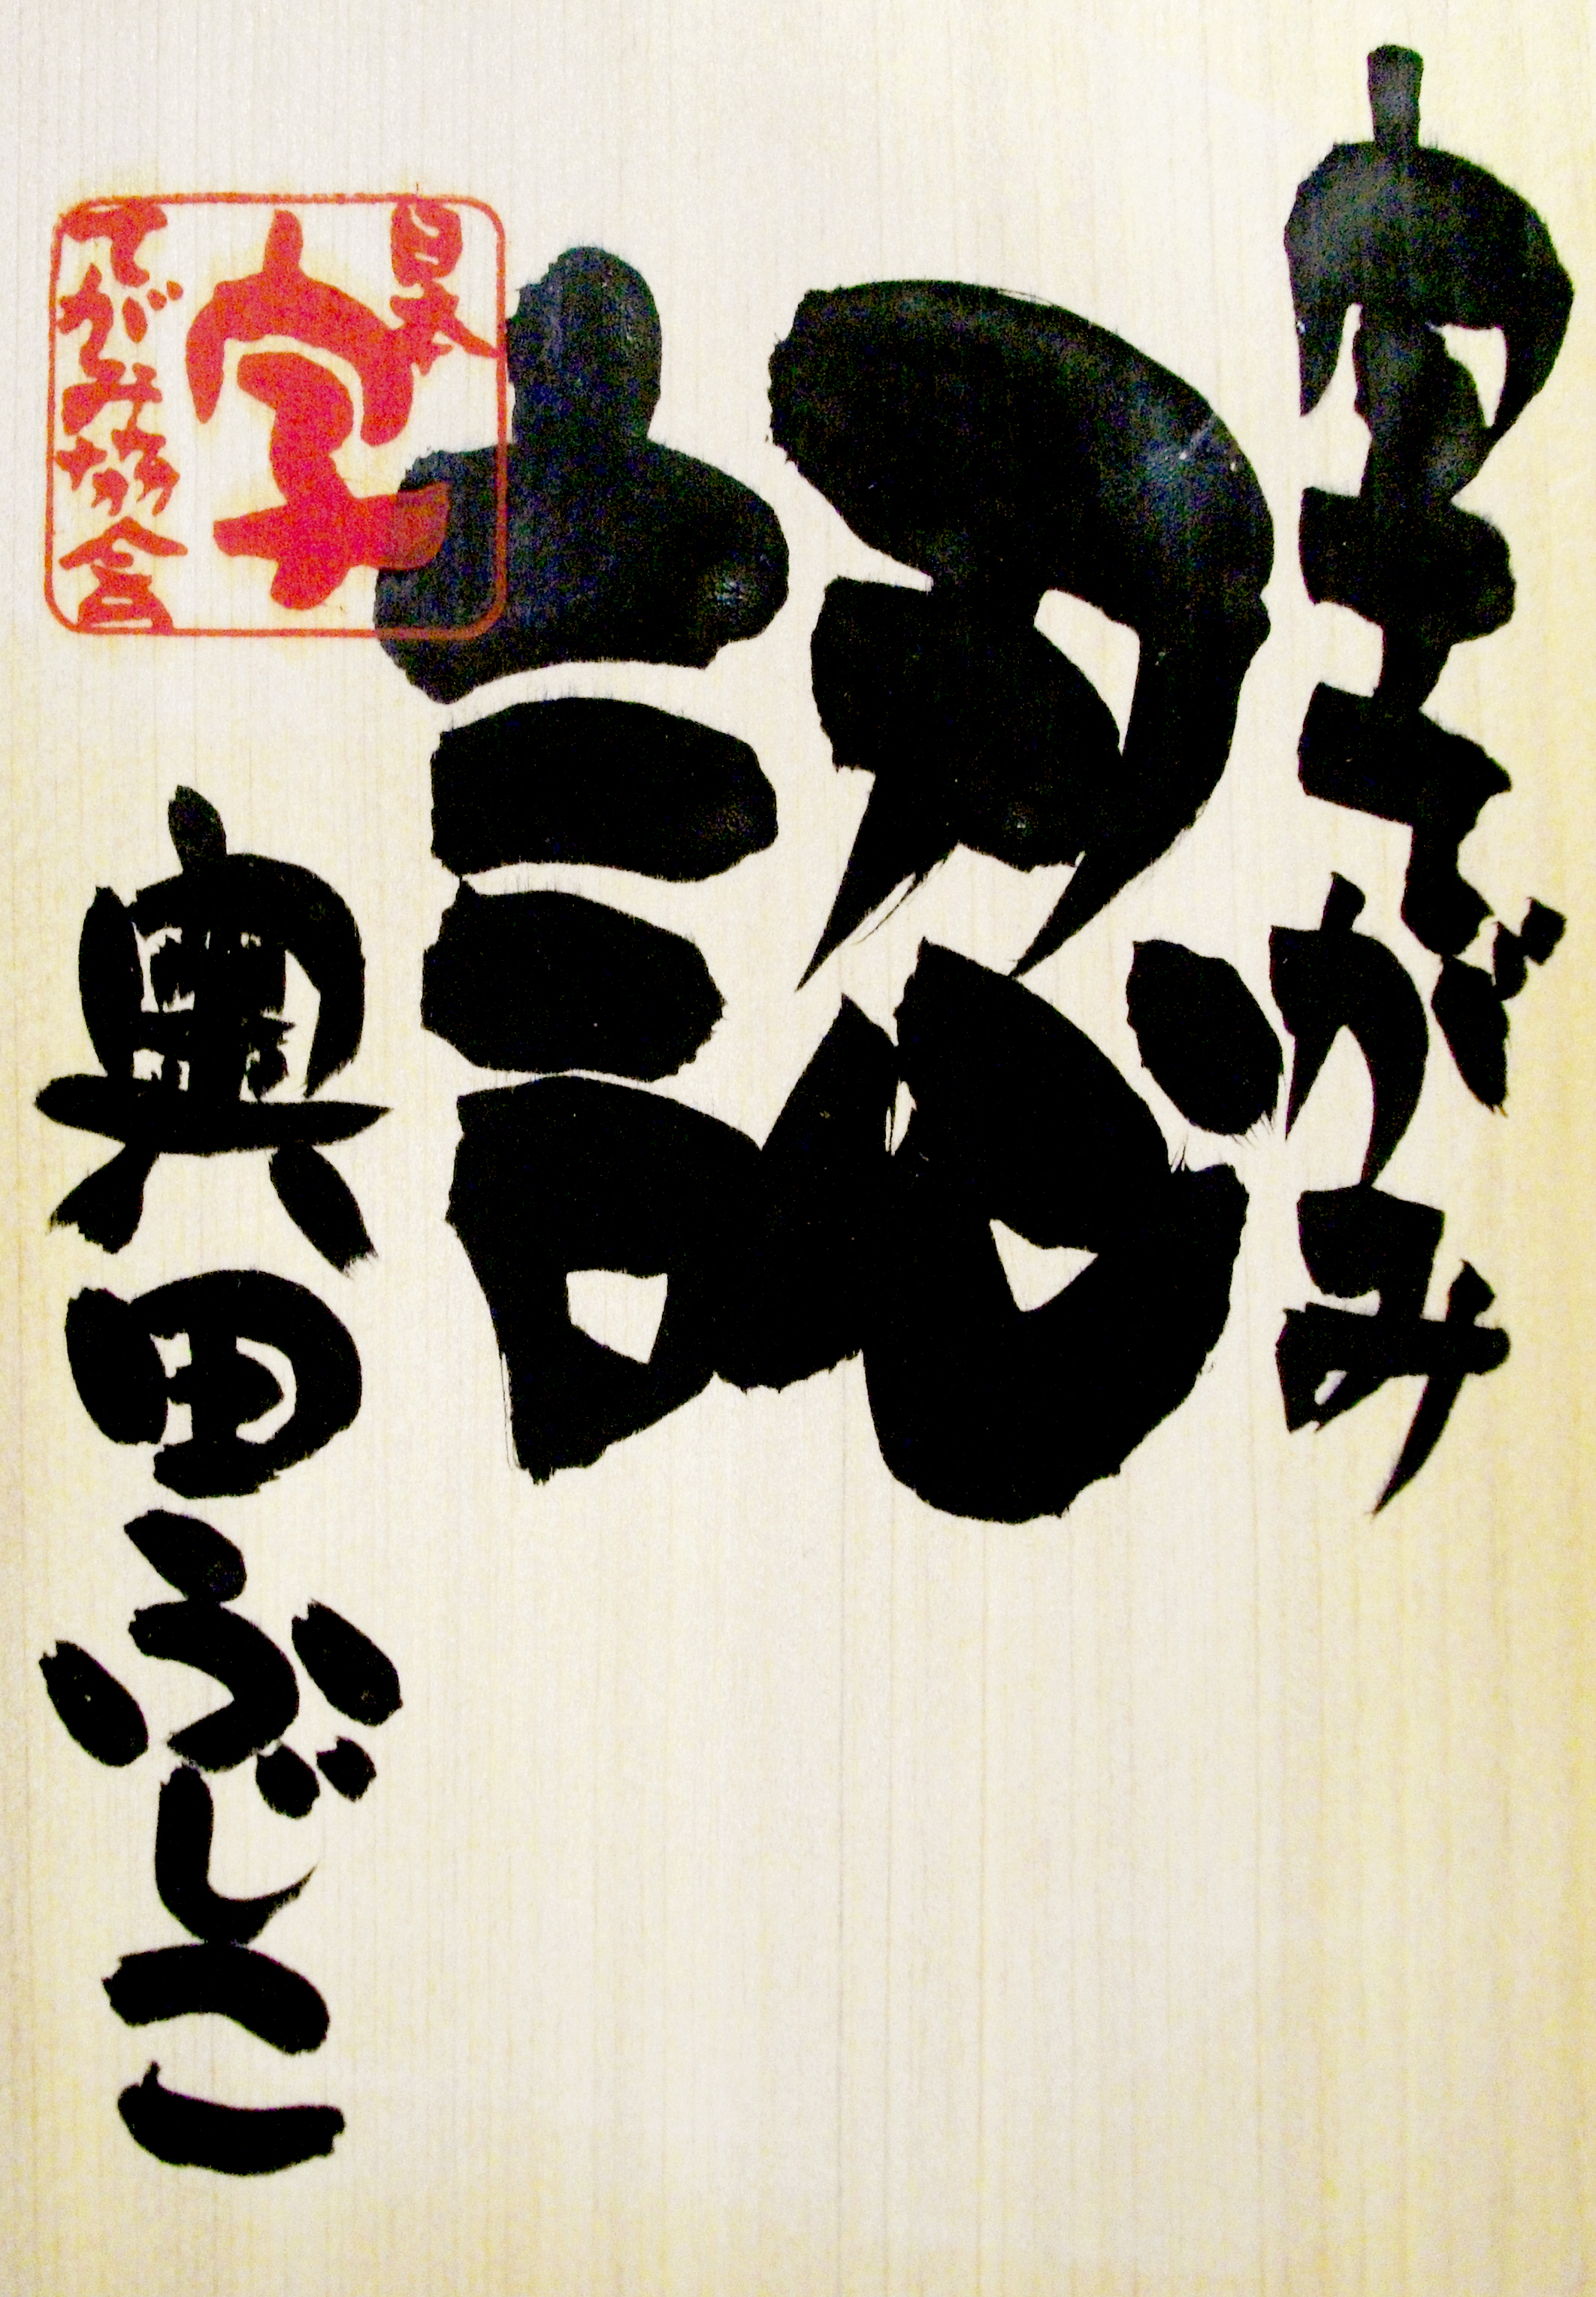 字てがみ
認
奥田ふじこ
日本
字
てがみ協会